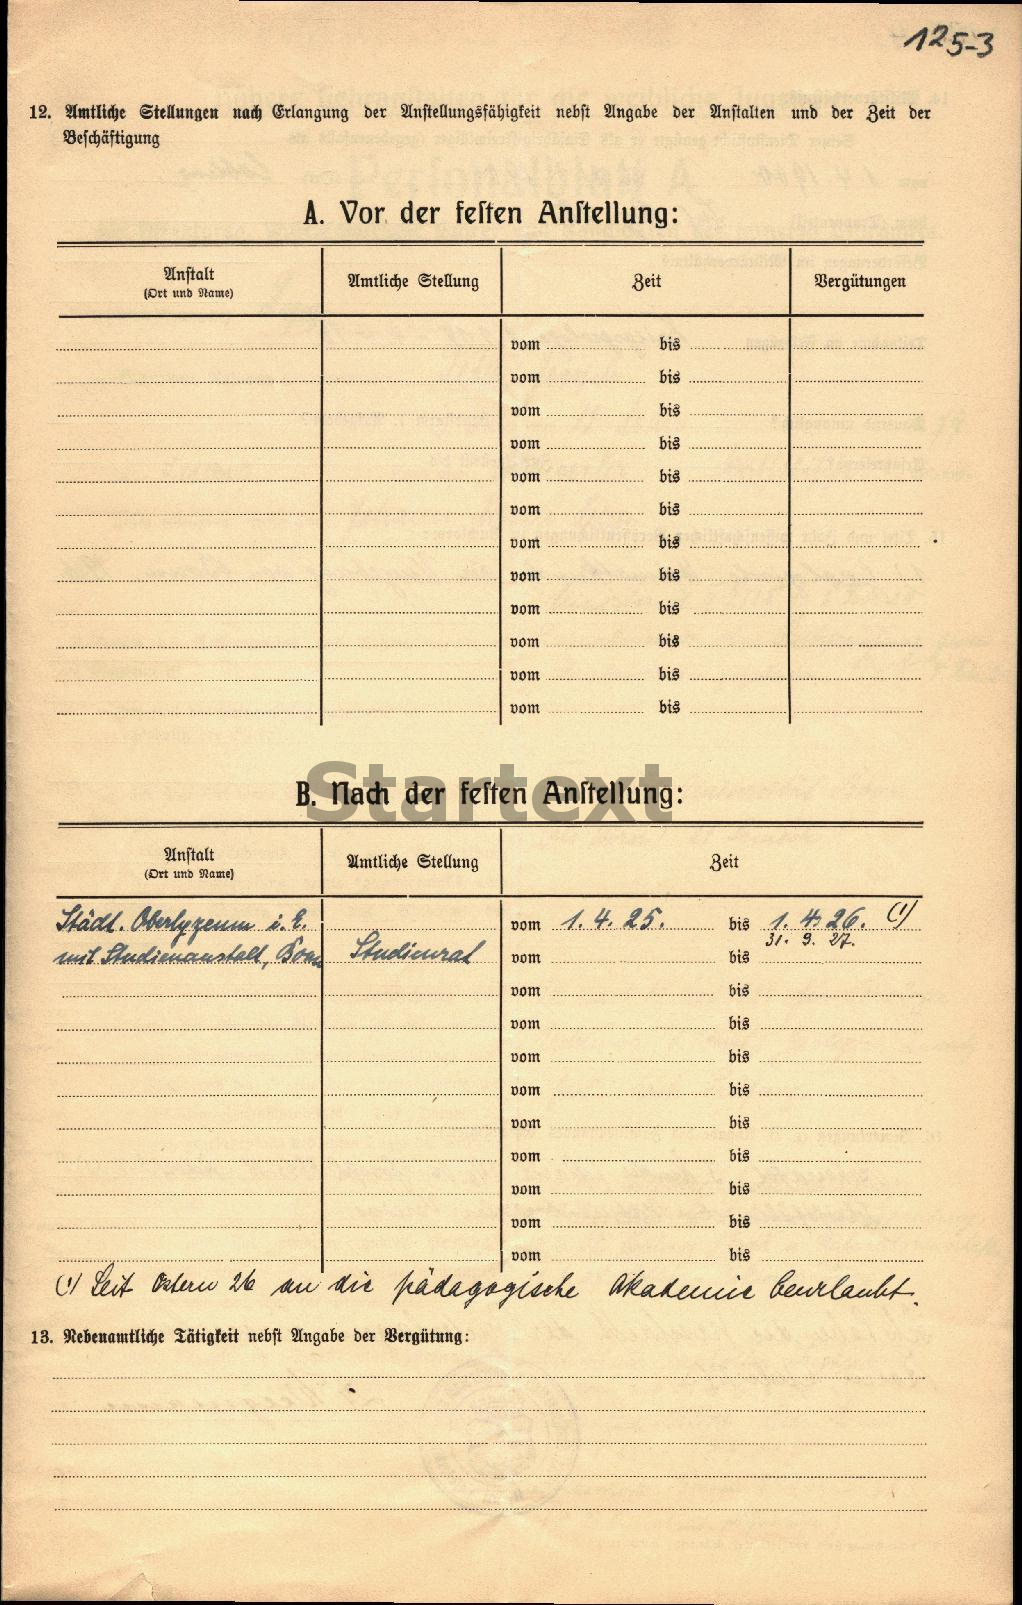 125-3
12. Amtliche Stellungen nach Erlangung der Anstellungsfähigkeit nebst Angabe der Anstalten und der Zeit der
Beschäftigung
A. Vor der festen Anstellung:
Anstalt
(Ort und Name)
Amtliche Stellung
Zeit
Vergütungen
vom bis
vom bis
vom bis
vom bis
vom bis
vom bis
vom bis
vom bis
vom bis
vom bis
vom bis
vom bis
Startext
B. Nach der festen Anstellung:
Anstalt
(Ort und Name)
Amtliche Stellung
Zeit
Städt. Oberlyzeum i. E. vom 1. 4. 25. bis 1. 4. 26. (1)
31. 9. 27.
mit Studienanstalt, Bonn Studienrat vom bis
vom bis
vom bis
vom bis
vom bis
vom bis
vom bis
vom bis
vom bis
vom bis
(1) Seit Ostern 26 an die pädagogische Akademie beurlaubt.
13. Nebenamtliche Tätigkeit nebst Angabe der Vergütung: